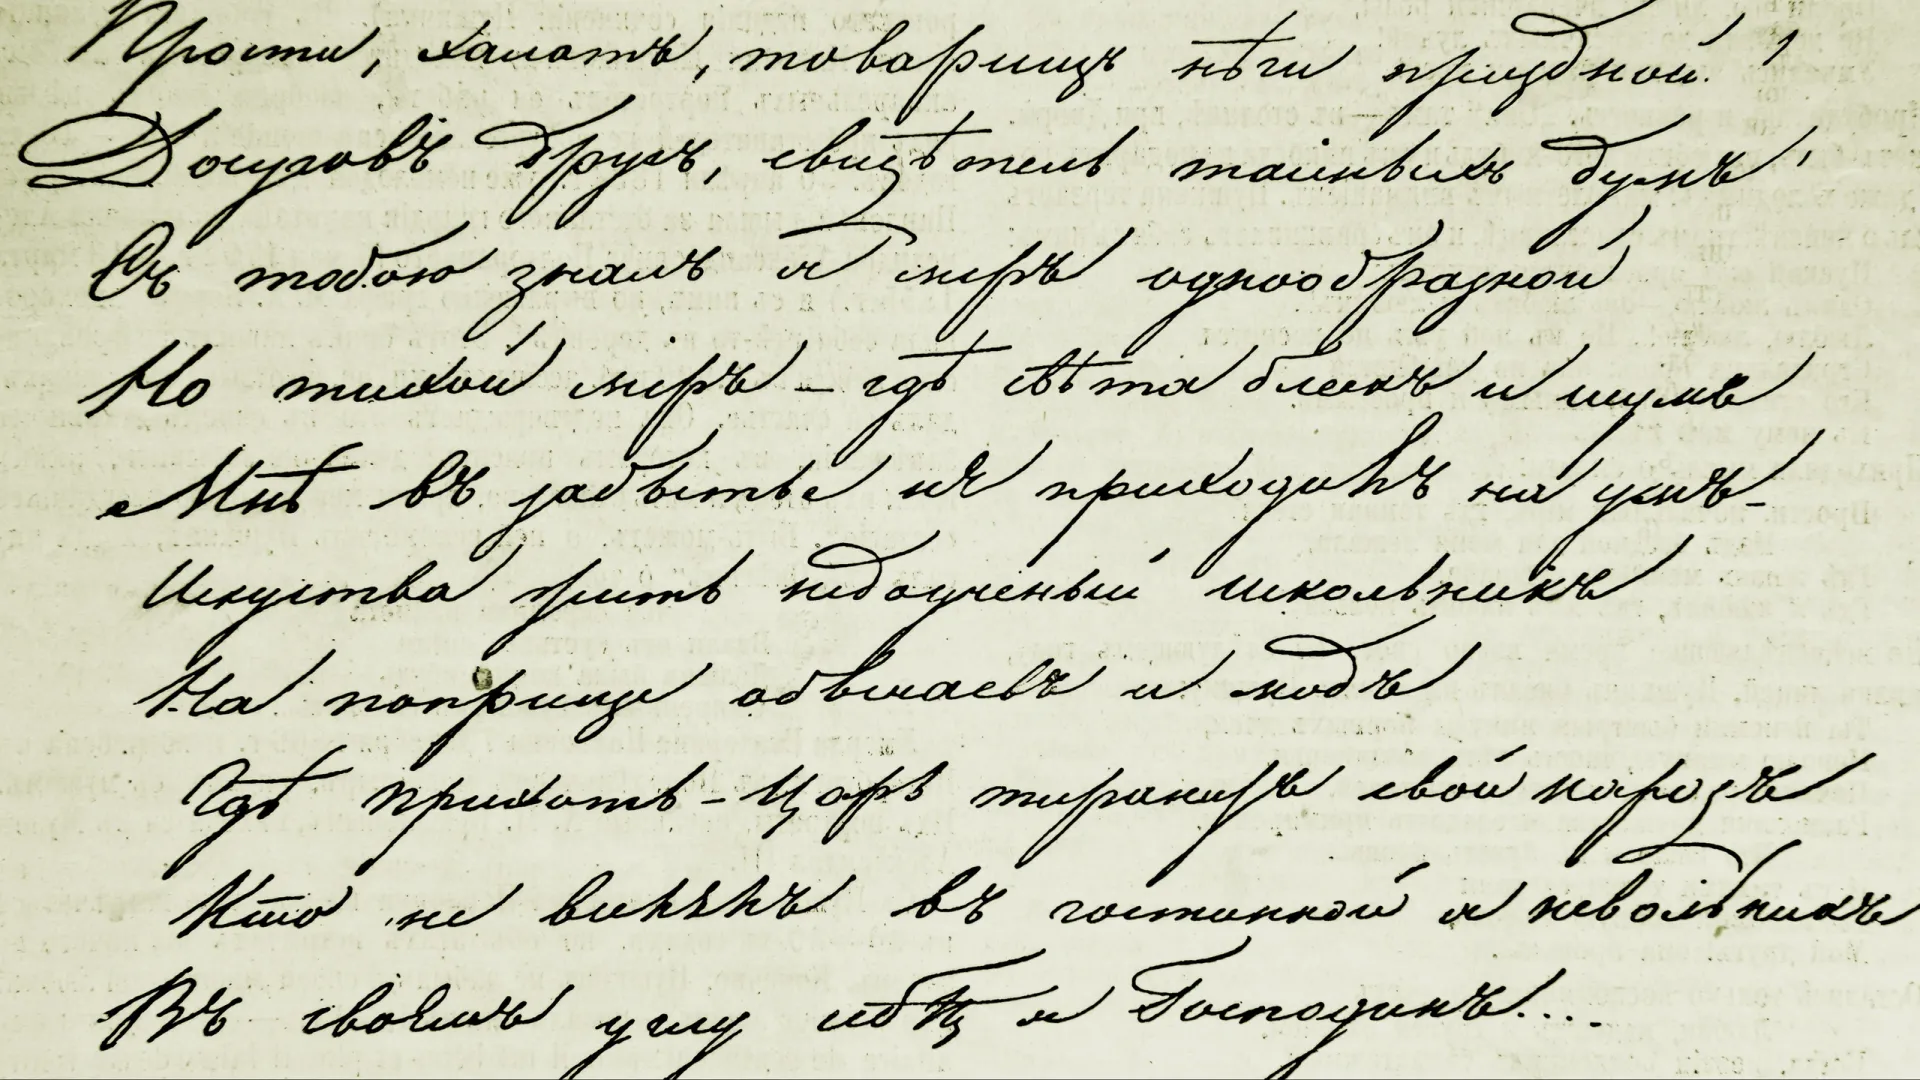 Прости, халатъ, товарищъ нѣги праздной!
Досуговъ другъ, свидѣтель тайныхъ думъ,
Съ тобою зналъ я миръ однообразной
Но тихой миръ – гдѣ свѣта блескъ и шумъ
Мнѣ въ забытьи не приходилъ на умъ –
Искуства жить недоученый школьникъ
На поприще обычаевъ и модъ
Гдѣ прихоть – Царь тиранитъ свой народъ
Кто не въ гостинной я невольникъ
Въ своемъ углу себѣ я Господинъ....